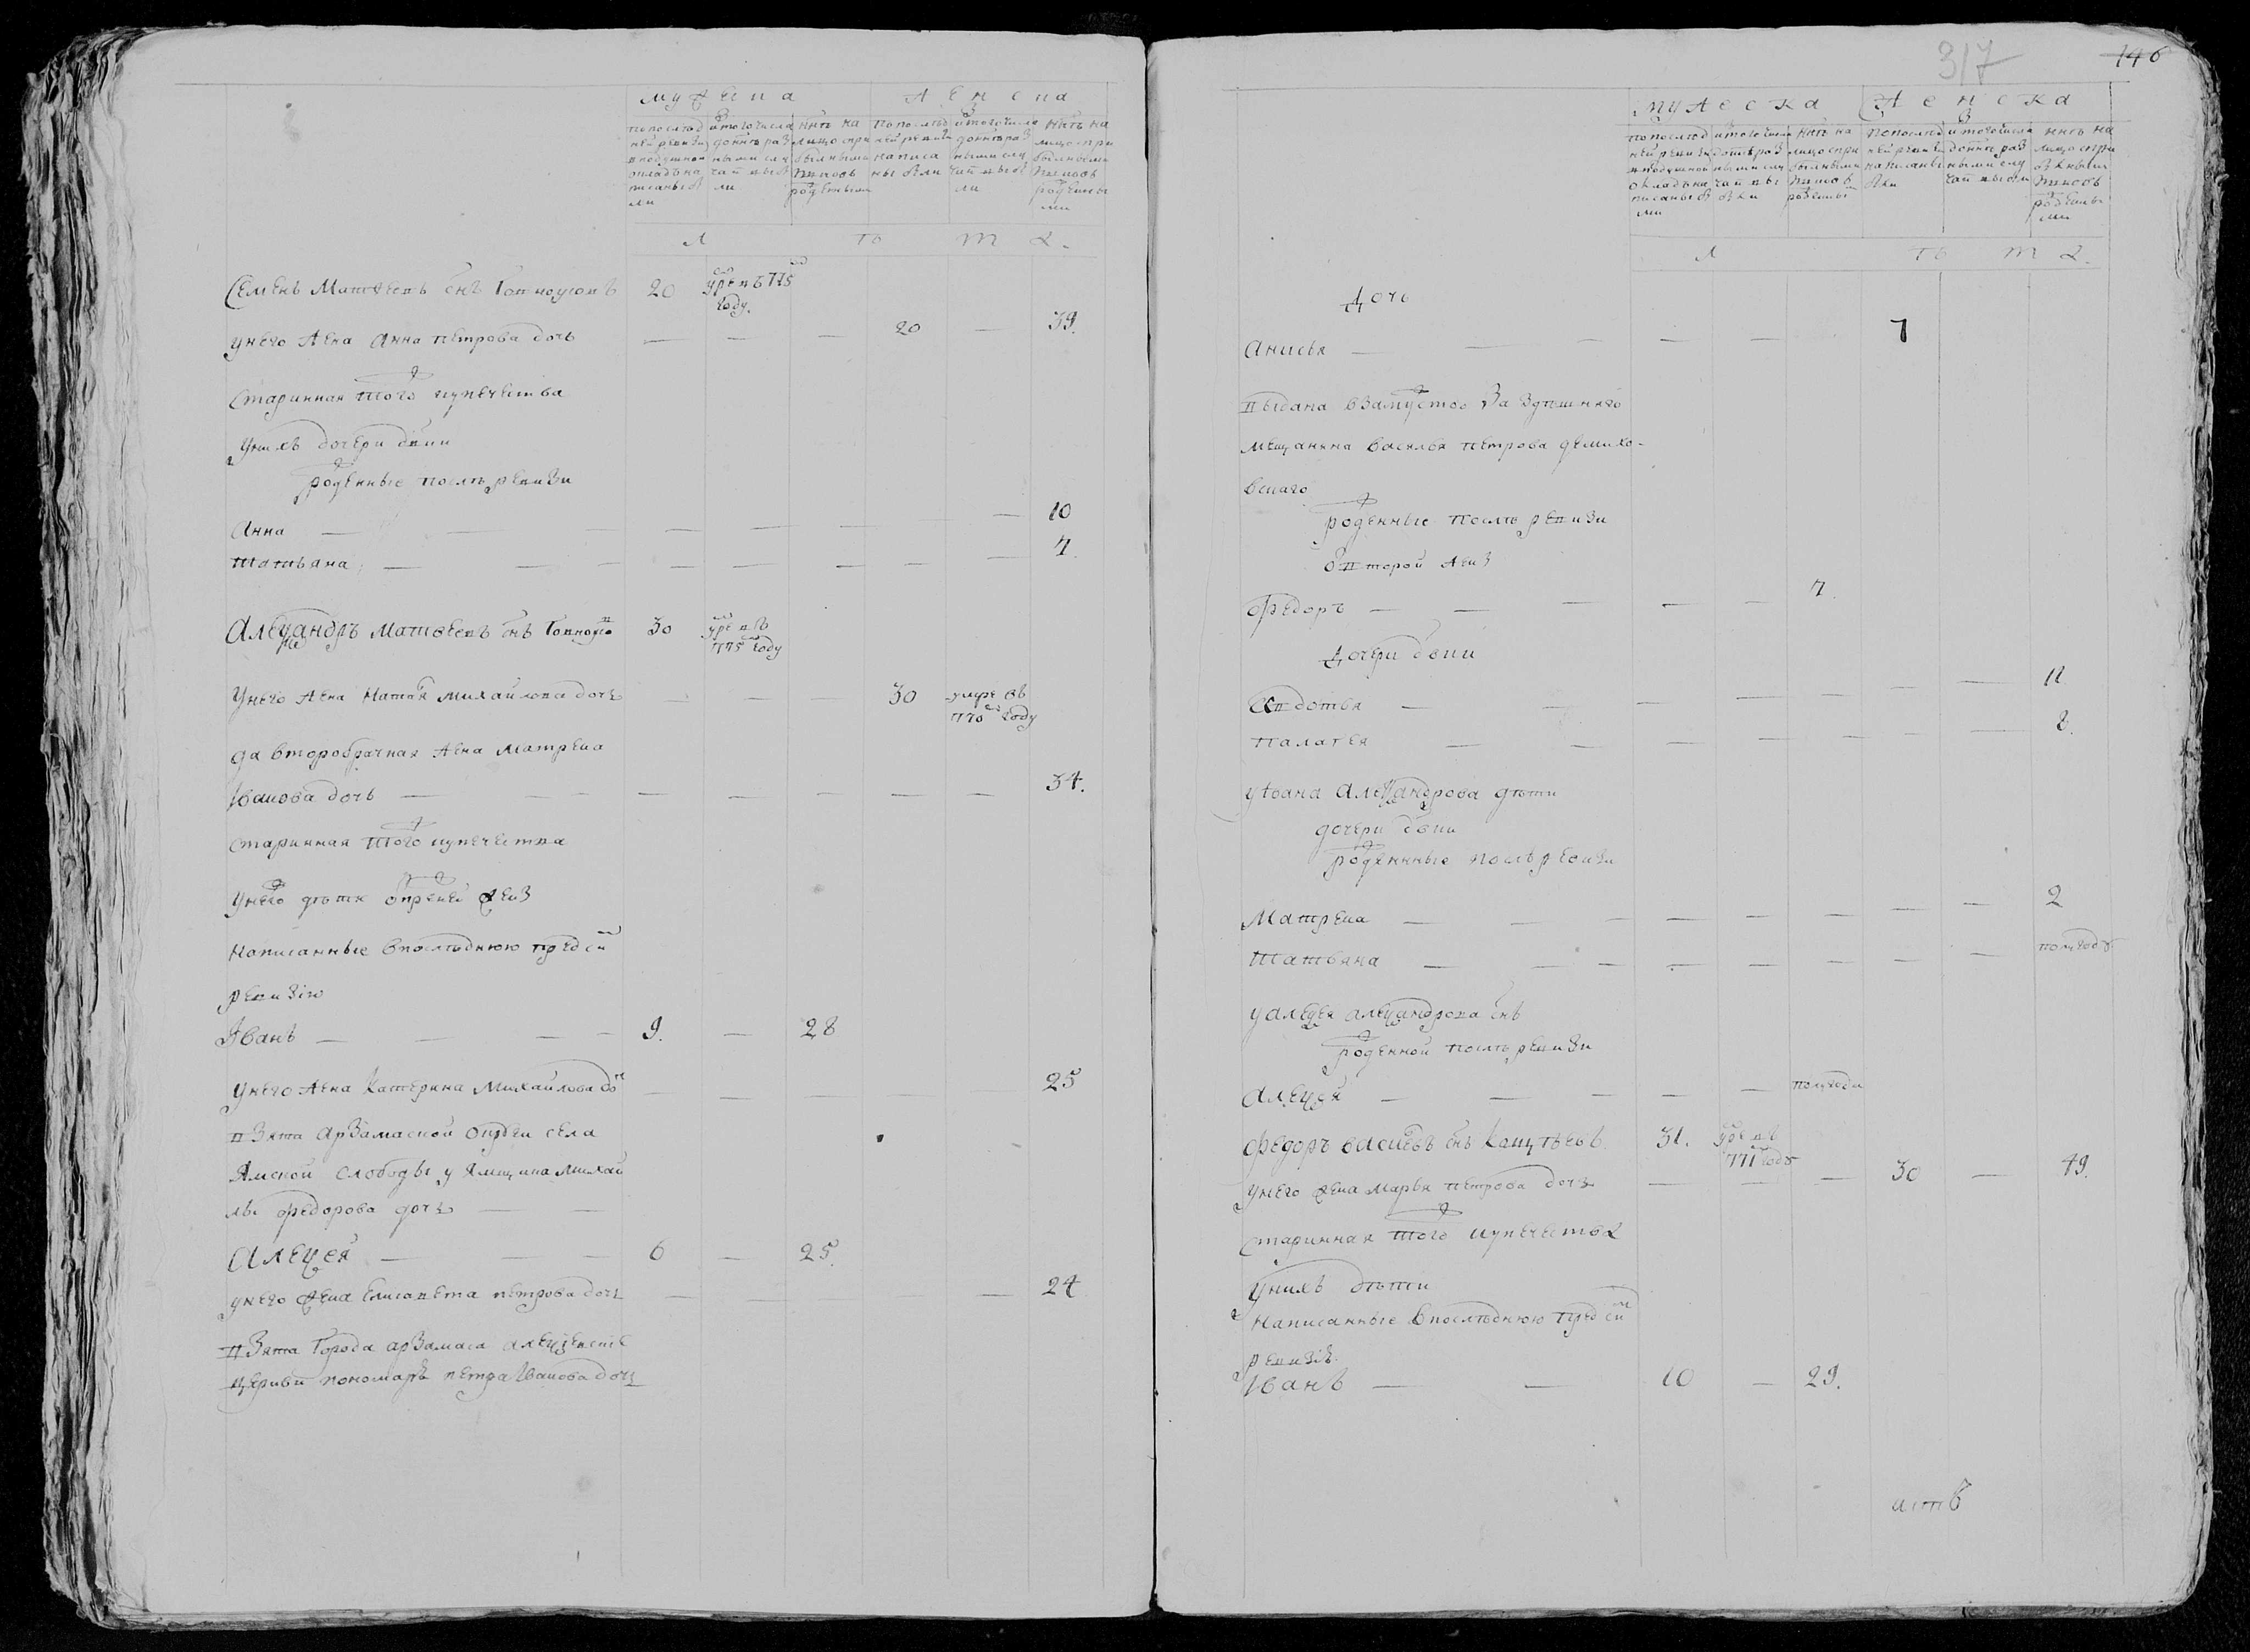 мужеска женска
по послѣд ней ревизи в подушной окладъ на писаны бы ли
и того числа до ннѣ раз ными слу чаи выбы ли
ннѣ на лицо с при былыми и вновь рожденными
по послѣд ней ревизи написа ны были
и того числа до ннѣ раз ными слу чаи выбы ли
ннѣ на лицо с при былыми и вновь рожденны ми
л ѣ т а.
Семенъ Матвеевъ снъ 20 умре въ 775
году.
у него жена Анна петрова дочь — — — 20 — 39.
старинная того купечества
у нихъ дочери двки
рожденные послѣ ревизи
Анна — — — — — — 10
татьяна — — — — — — 7.
Александръ Матвеевъ снъ 30 умре въ
775 году
у него жена михайлова дочь — — — 30 умре въ
770 году
да второбрачная жена матрена
Iванова дочь — — — — — 34.
старинная того купечества
у него дѣти от первой жены
написанные в последнюю пред сим
ревизiю
Iванъ — — — 9. — 28
у него жена катерина михайлова до — — — — 25
взята арзамаской округи села
Ямской слободы у Ямщика михаи
лы федорова дочь — —
Алеѯей — — — 6 — 25.
у него жена елисавета петрова дочь — — — 24
взята города арзамаса
церкви пономаря петра Iванова дочь
317
146
мужеска женска
по послѣд ней ревизи в подушной окладъ на писаны бы ли
и того числа до ннѣ раз ными слу чаи вы были
ннѣ на лицо с при былыми и вновь рожденны
по послѣд ней ревизи написаны были
и того числа до ннѣ раз ными слу чаи выбыли
ннѣ на лицо с при былыми и вновь рожденны ми
л ѣ т а.
Дочь
анисья — — — — — 7
выдана взамуство за здешняго
мещанина василья петрова демихо-
вскаго
рожденные послѣ ревизи
от второй жены
федоръ — — — — — 7.
Дочери двки
Авдотья — — — — — — 11
палагея — — — — — — — 8.
у Iвана Александрова дѣти
дочери двки
рожденные послѣ ревизи
Матрена — — — — — — — — 2
татьяна — — — — — — — — полугоду
у алеѯея алеѯандрова снъ
рожденной послѣ ревизи
Алеѯей — — — — — полугода
федоръ васильевъ снъ 31. умре въ
771 году
у него жена марья петрова дочь — — — 30 — 49.
старинная того купечества
у нихъ дѣти
написанные в последнюю пред сим
ревизiю
Iванъ — — 10 — 29.